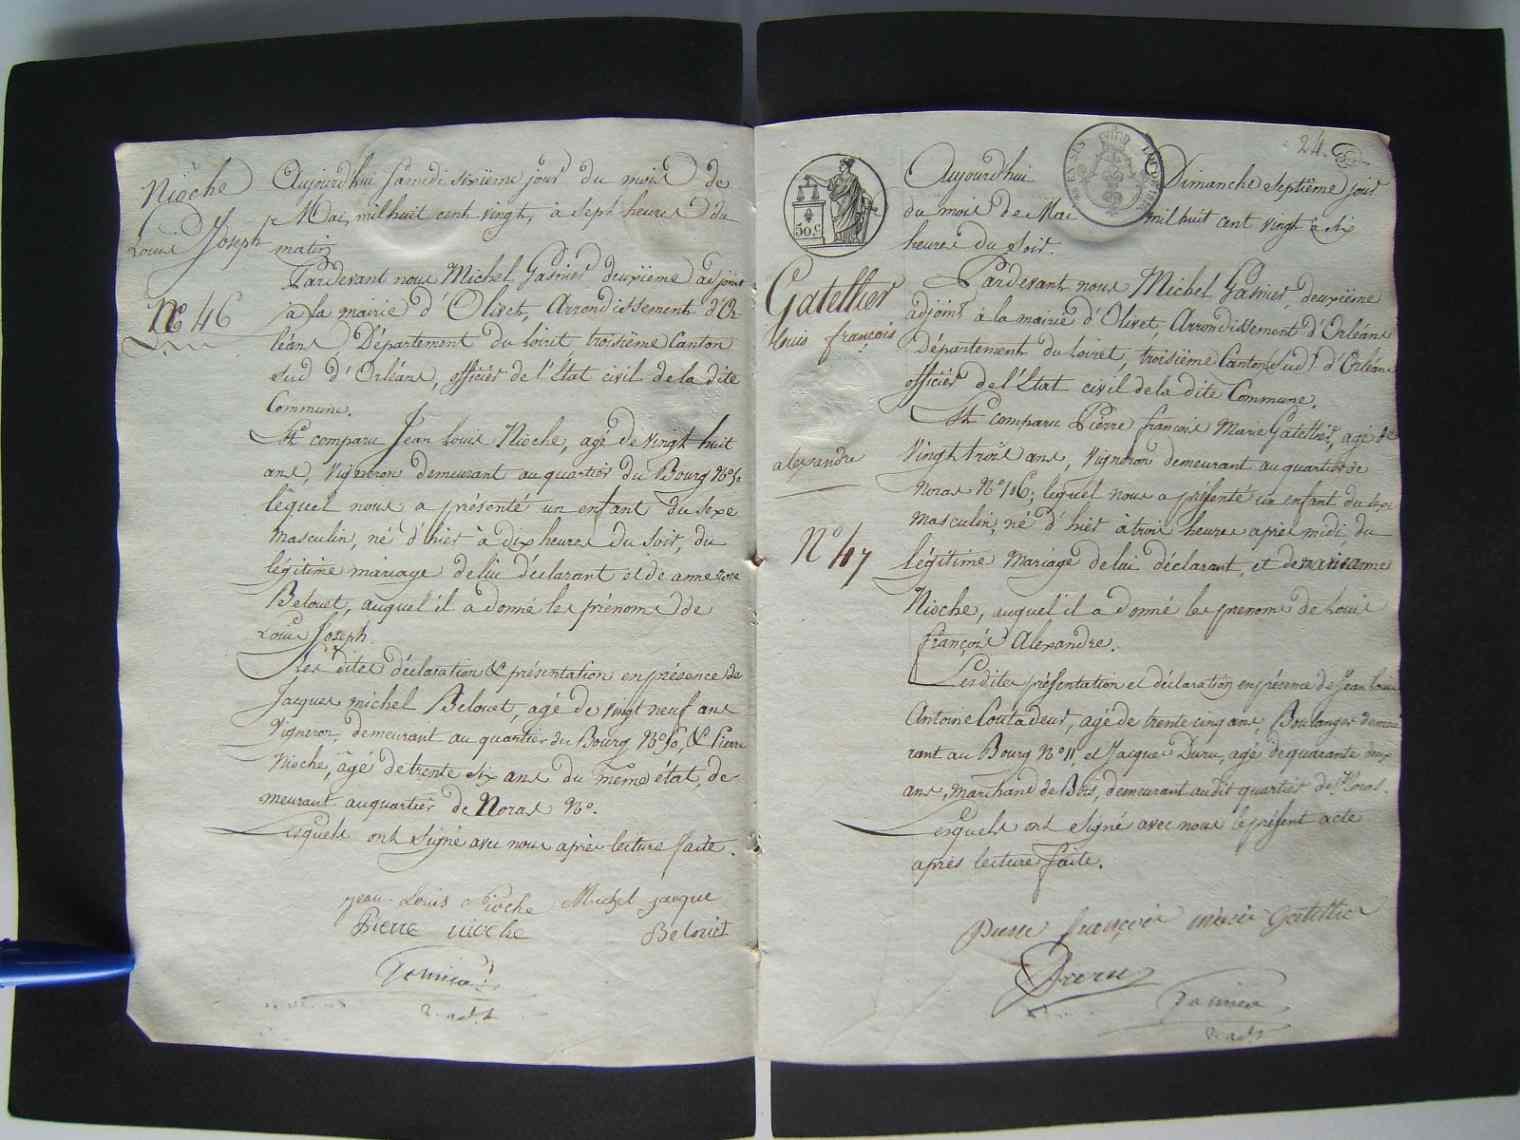 Nioche
Louis Joseph
No 46
Aujourd'hui Samedi sixième jour du mois de
Mai, mil huit cent vingt, à sept heures du
matin
Pardevant nous Michel Gasnier deuxième adjoint
à la mairie d'Olivet, Arrondissement d'Or
léans, Département du Loiret troisième Canton
sud d'Orléans, officier de l'État civil de la dite
Commune.
Est comparu Jean Louis Nioche, agé de vingt huit
ans, vigneron demeurant au quartier du Bourg No
lequel nous a présenté un enfant du sexe
masculin, né d'hier à dix heures du soir, du
légitime mariage de lui déclarant et de anne rose
Belouet, auquel il a donné les prénoms de
Louis Joseph.
Les dites déclaration & présentation en présence de
Jacques michel Belouet, agé de vingt neuf ans
Vigneron, demeurant au quartier du Bourg No &  Pierre
Nioche, âgé de trente six ans du même état, de
meurant au quartier de Noras No.
Lesquels ont signé avec nous après lecture faite.
jean Louis Nioche Michel jacque
Pierre nioche Belouet
Gasnier
2e adjt
24
50 C
Gatellier
louis françois
alexandre
No 47
Aujourd'hui Dimanche septième jour
du mois de Mai mil huit cent vingt à six
heures du soir.
Pardevant nous Michel Gasnier, deuxième
adjoint à la mairie d'Olivet, Arrondissement d'Orléans
Département du Loiret, troisième Canton (sud) d'Orléans
officier de l'État civil de la dite Commune.
Est comparu Pierre françois Marie Gatellier, agé de
vingt trois ans, vigneron demeurant au quartier de
Noras No 116; lequel nous a présenté un enfant du sexe
masculin, né d'hier à trois heures après midi du
légitime mariage de lui déclarant, et de marianne
Nioche, auquel il a donné les prenoms de Louis
françois Alexandre.
Lesdites présentation et déclaration en présence de Jean Louis
Antoine Coutadeur, agé de trente cinq ans, Boulanger demeu
rant au Bourg No 11, et Jacques Duru, agé de quarante deux
ans, marchand de Bois, demeurant au dit quartier de Noras.
Lesquels ont signé avec nous le présent acte
après lecture faite.
Pierre françois marie Gatellier
Duru
Gasnier
2e adjt